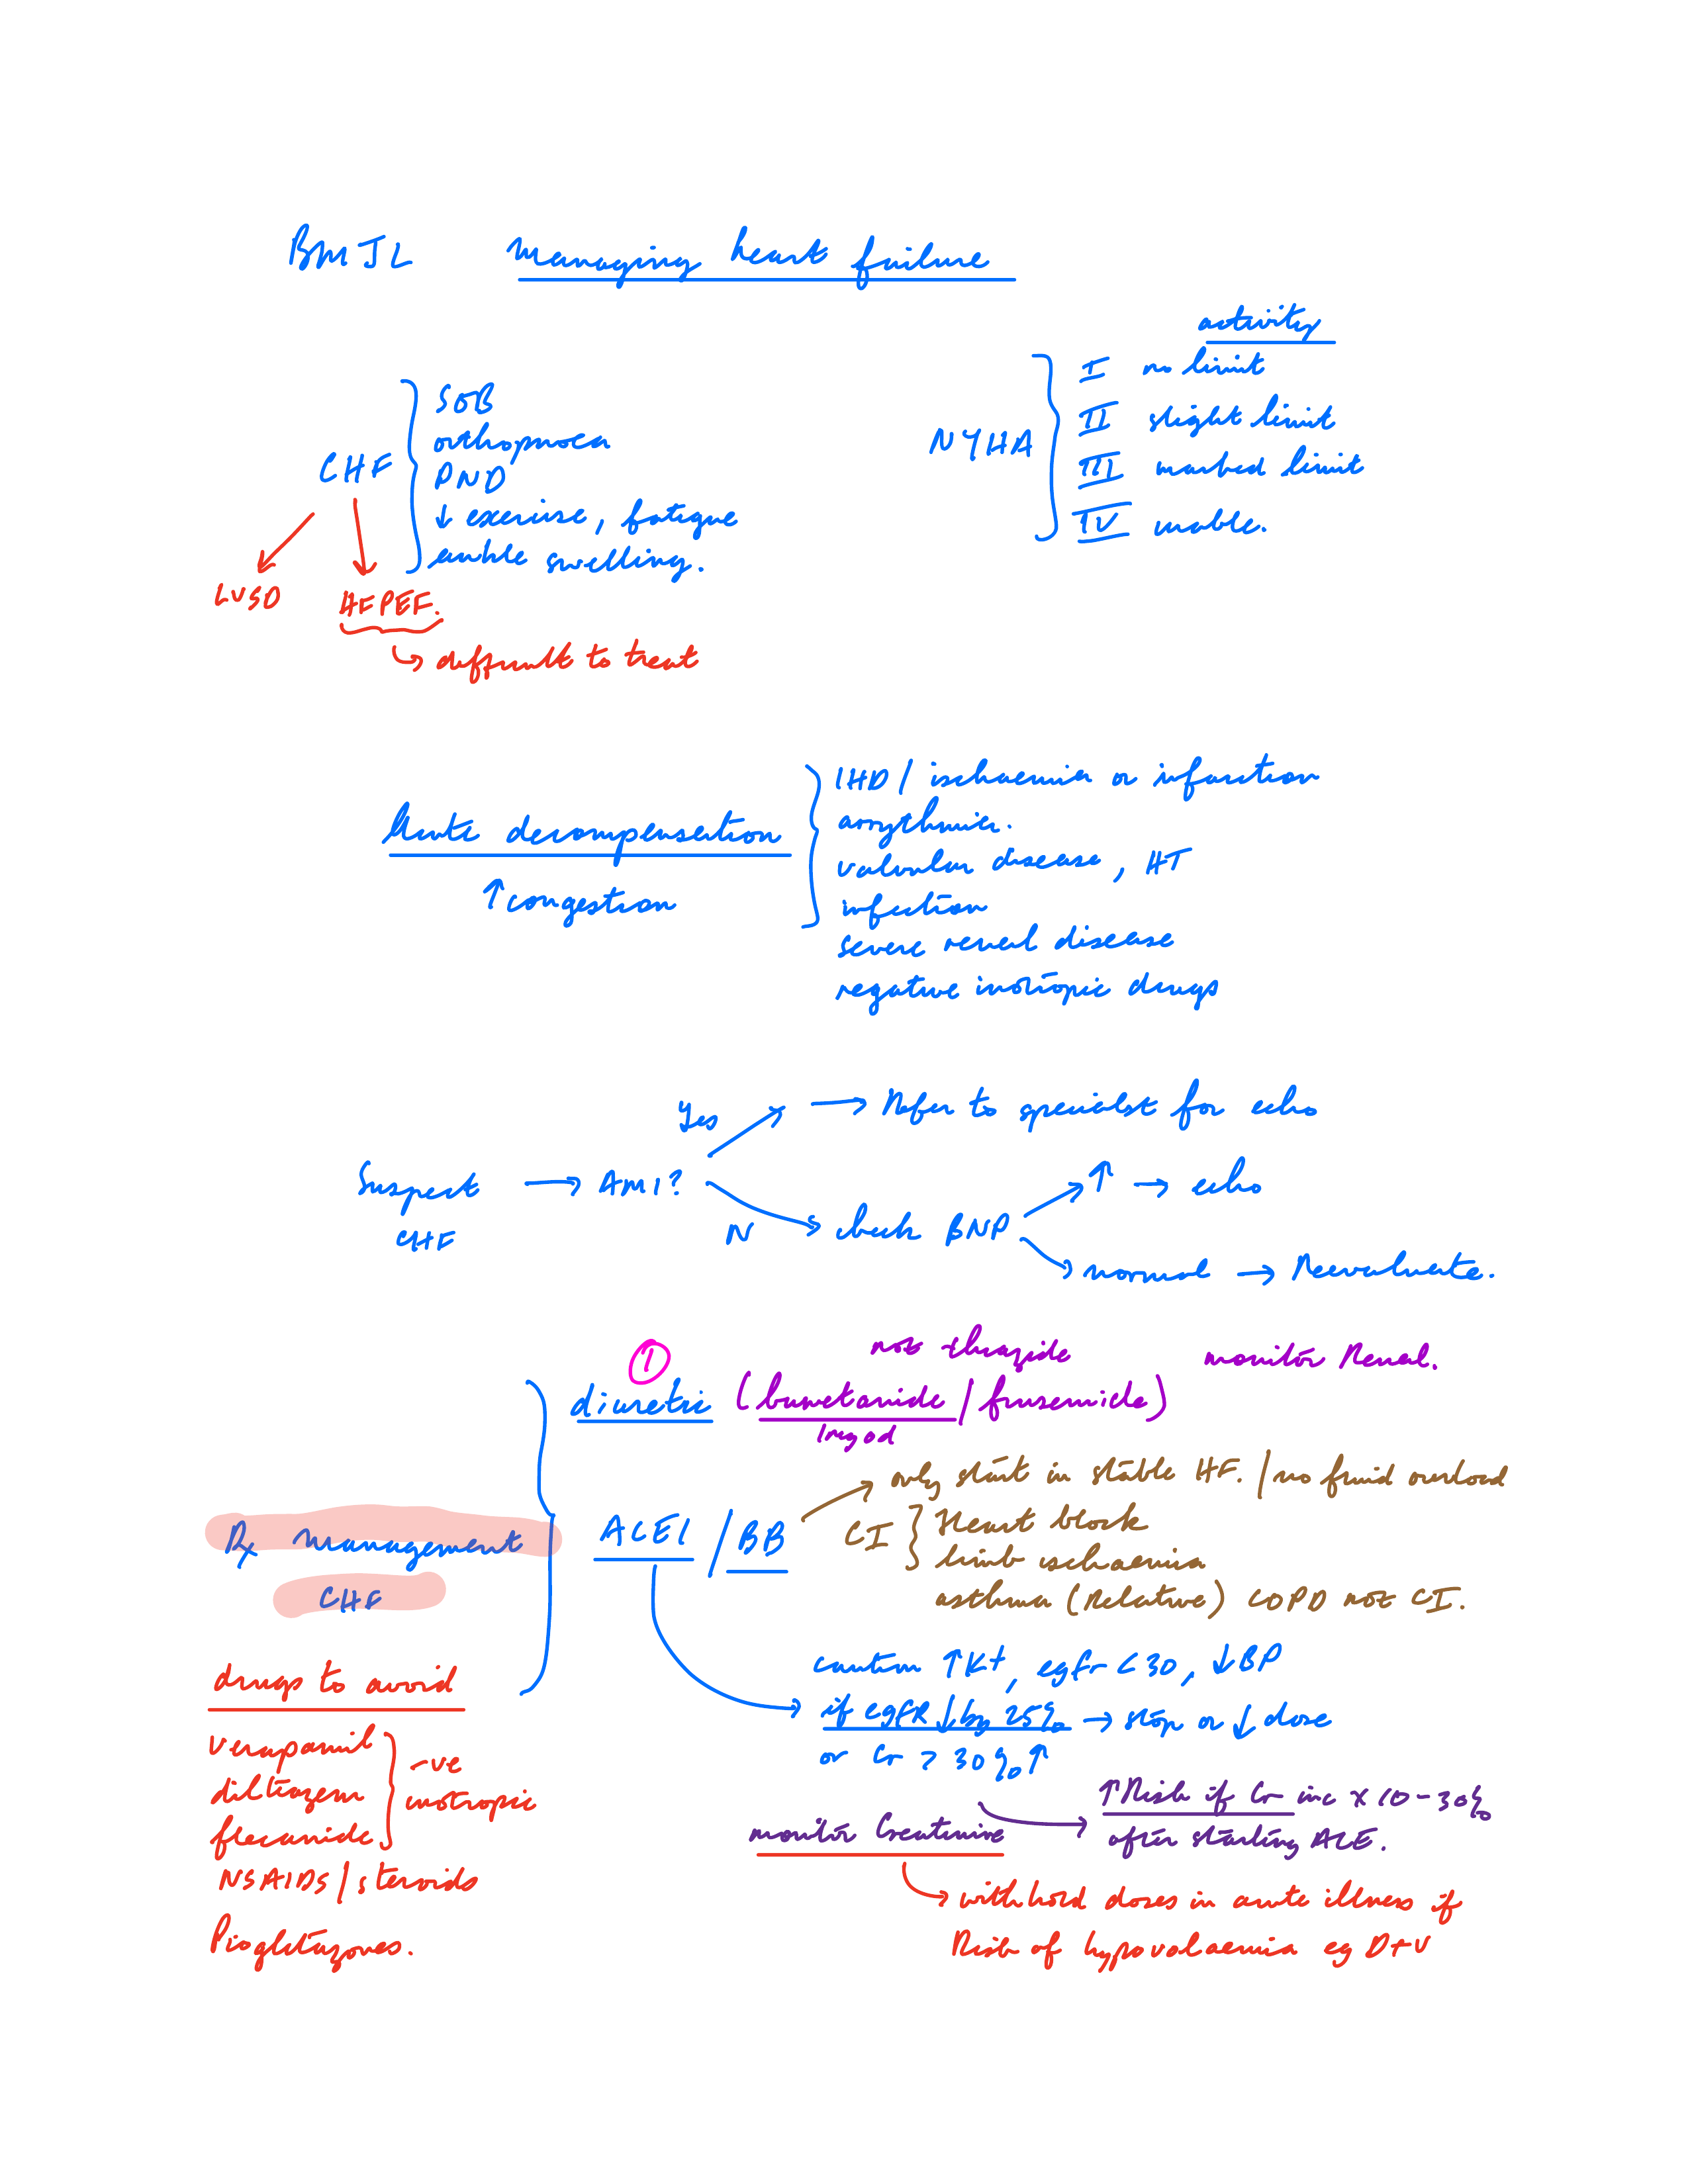 BMJL managing heart failure
activity
NYHA
I no limit
II slight limit
III marked limit
IV unable.
CHF
SOB
orthopnoea
PND
↓ exercise, fatigue
ankle swelling.
LVSD
HFPEF.
↳ difficult to treat
Acute decompensation
↑ congestion
IHD / ischaemia or infarction
arrythmia.
valvular disease, HT
infection
severe renal disease
negative inotropic drugs
Suspect CHF → AMI?
Yes → Refer to specialist for echo
N → check BNP
↑ → echo
normal → Reevaluate.
Rx management
CHF
①
diuretic (bumetanide / frusemide)
not thiazide
monitor Renal.
1mg od
ACEI / BB
→ only start in stable HF. / no fluid overload
CI
Heart block
limb ischaemia
asthma (Relative) COPD not CI.
caution ↑K+, egfr < 30, ↓BP
if egfR ↓ by 25% → stop or ↓ dose
or Cr > 30% ↑
monitor Creatinine
→ ↑Risk if Cr inc x 10-30%
after starting ACE.
→ withhold doses in acute illness if
Risk of hypovolaemia eg D+V
drugs to avoid
verapamil
diltiazem
flecanide
-ve
inotropic
NSAIDS / steroids
Pioglitazones.